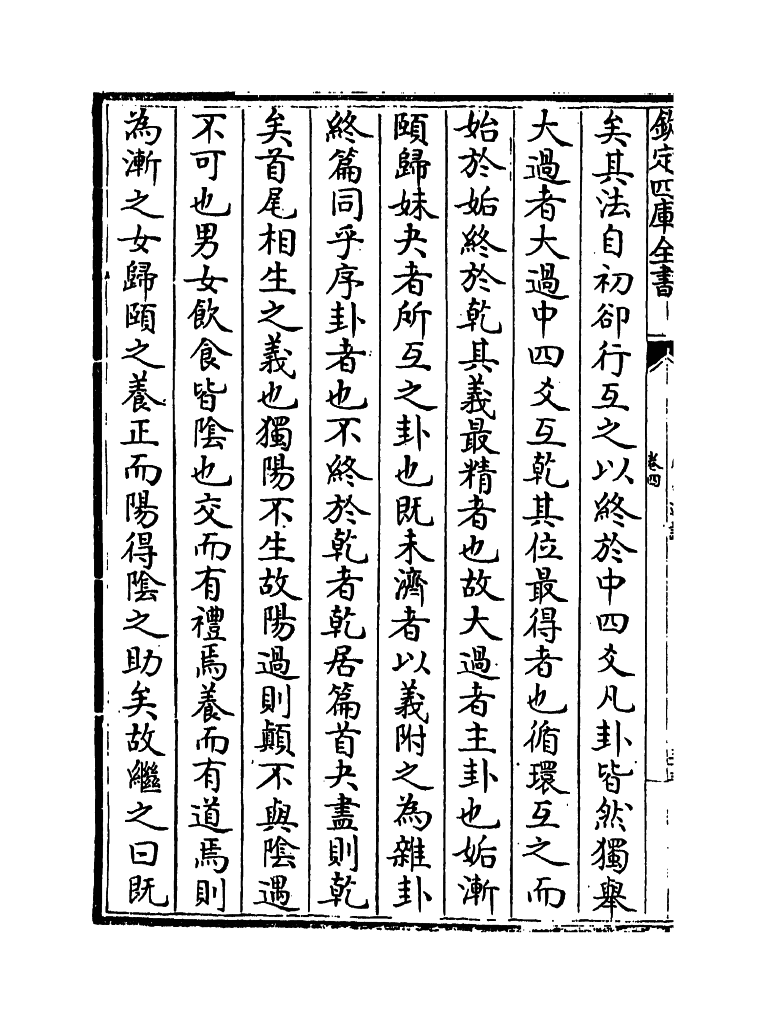 欽定四庫全書
卷四
矣其法自初卻行互之以終於中四爻凡卦皆然獨舉
大過者大過中四爻互乾其位最得者也循環互之而
始於姤終於乾其義最精者也故大過者主卦也姤漸
頤歸妹夬者所互之卦也既未濟者以義附之為雜卦
終篇同乎序卦者也不終於乾者乾居篇首夬盡則乾
矣首尾相生之義也獨陽不生故陽過則顛不與陰遇
不可也男女飲食皆陰也交而有禮焉養而有道焉則
為漸之女歸頤之養正而陽得陰之助矣故繼之曰既